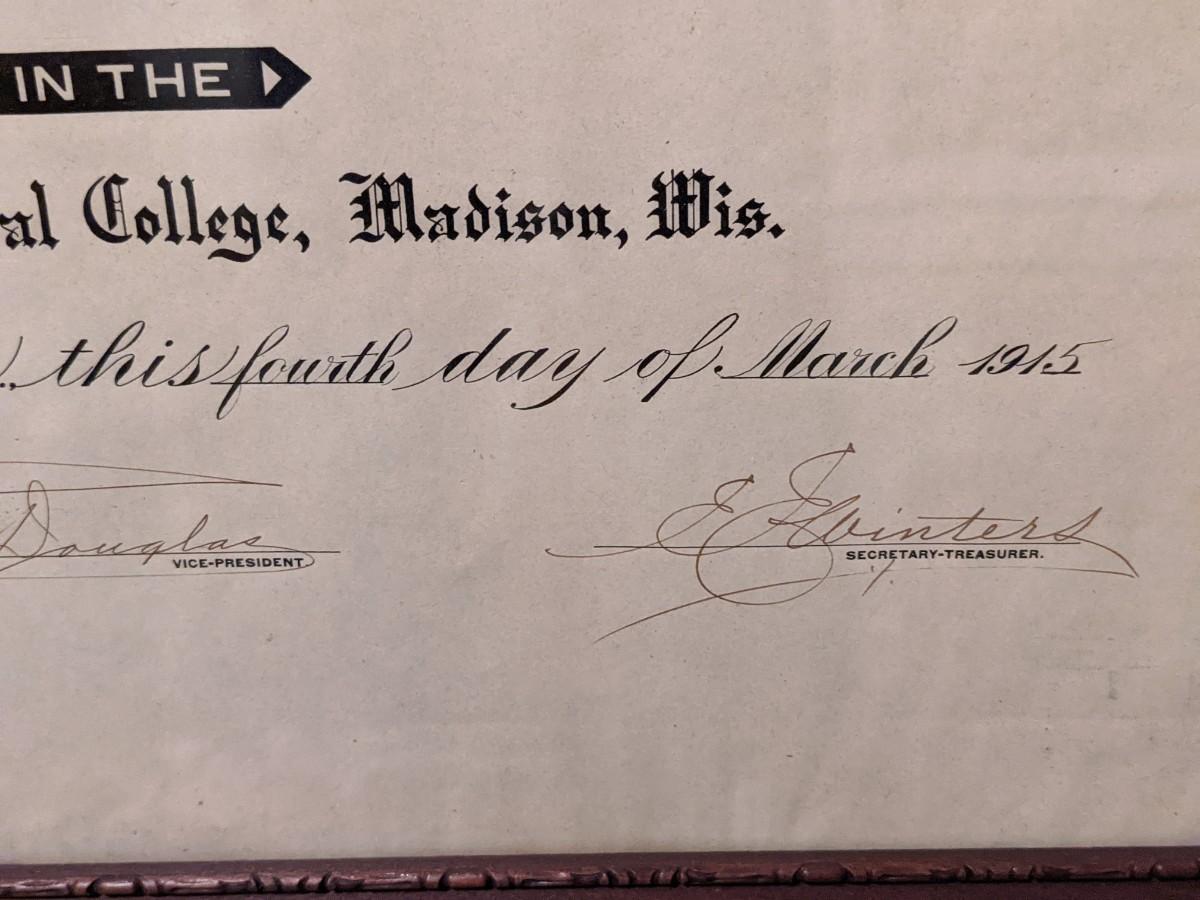 IN THE
al College, Madison, Wis.
this fourth day of March 1915
Douglas
VICE-PRESIDENT
E E Winters
SECRETARY-TREASURER.